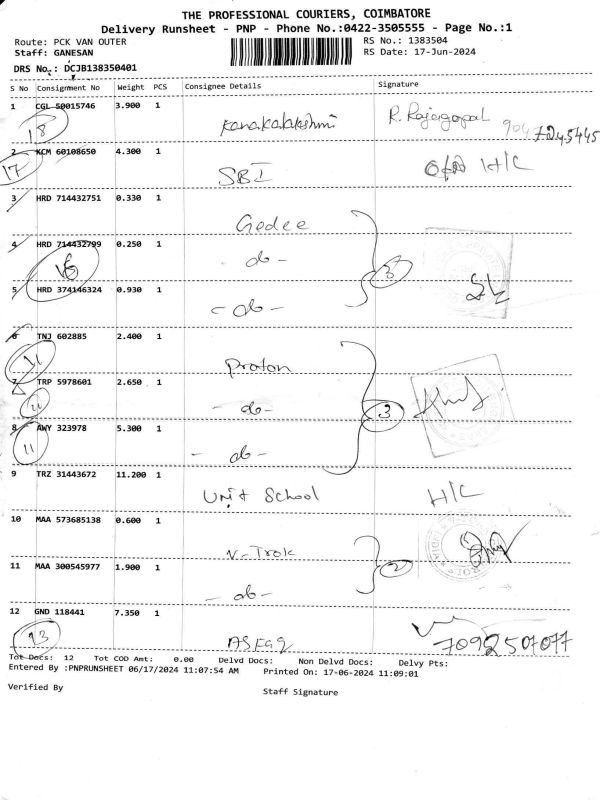 THE PROFESSIONAL COURIERS, COIMBATORE
Delivery Runsheet - PNP - Phone No.:0422-3505555 - Page No.:1
Route: PCK VAN OUTER RS No.: 1383504
Staff: GANESAN RS Date: 17-Jun-2024
DRS No.: DCJB138350401
S No Consignment No Weight PCS Consignee Details Signature
1 CGL 50015746 3.900 1 Kanakalakshmi R. Rajagopal
18
2 KCM 60108650 4.300 1 SBI H/C
17
3 HRD 714432751 0.330 1 Gedee
4 HRD 714432799 0.250 1 - do -
16 3
5 HRD 374146324 0.930 1 - do -
6 TNJ 602885 2.400 1 Proton
11
7 TRP 5978601 2.650 1 - do - 3
11
8 AWY 323978 5.300 1 - do -
11
9 TRZ 31443672 11.200 1 Unit School H/C
10 MAA 573685138 0.600 1 V-Trok
11 MAA 300545977 1.900 1 - do - 2
12 GND 118441 7.350 1
13 7092507077
Tot Docs: 12 Tot COD Amt: 0.00 Delvd Docs: Non Delvd Docs: Delvy Pts:
Entered By :PNPRUNSHEET 06/17/2024 11:07:54 AM Printed On: 17-06-2024 11:09:01
Verified By Staff Signature